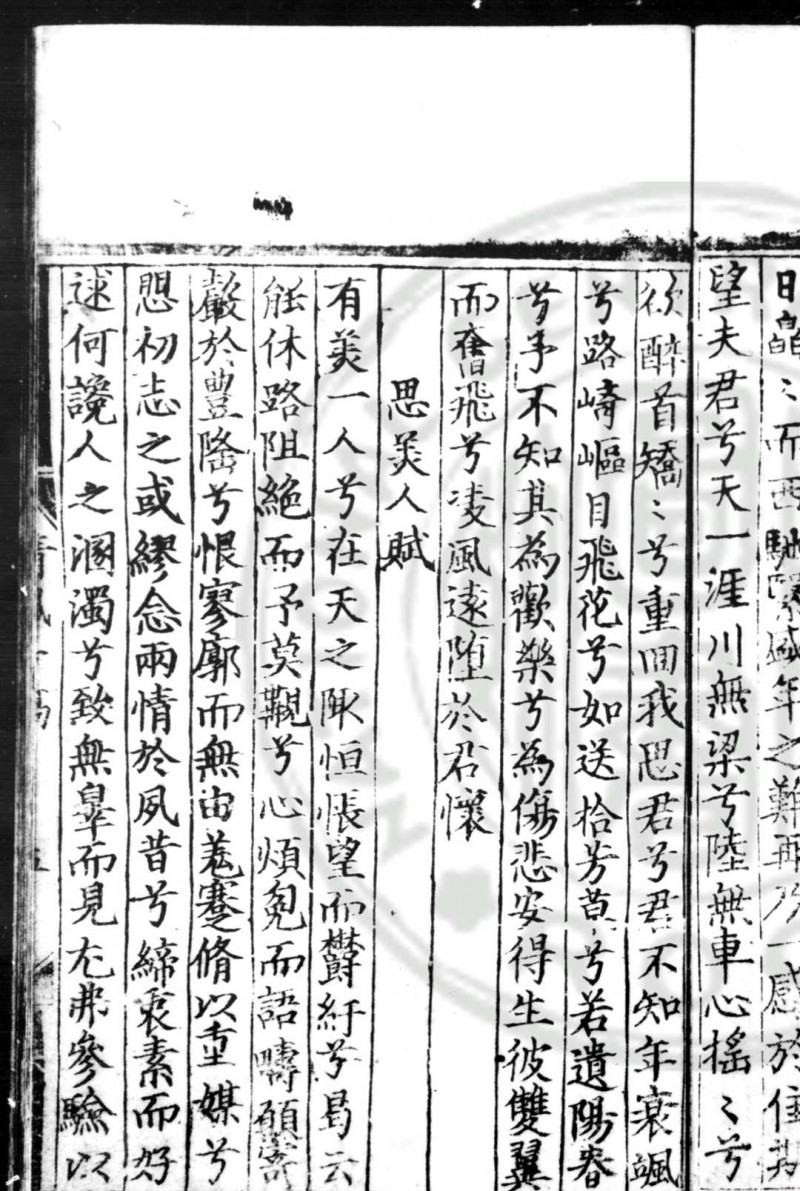 日皛〻而西馳緊盛年之難再兮一感於佳期
望夫君兮天一涯川無梁兮陸無車心搖〻兮
欲醉首矯〻兮重回我思君兮君不知年衰颯
兮路崎嶇目飛花兮如送拾芳草兮若遺陽春
兮予不知其為歡樂兮為傷悲安得生彼雙翼
而奮飛兮凌風遠墮於君懷
思美人賦
有美一人兮在天之陬恒悵望而欝紆兮曷云
能休路阻絶而予莫覯兮心煩寃而語疇願寄
聲於豐隆兮恨寥廓而無由羌蹇脩以重媒兮
愬初志之或繆念兩情於夙昔兮締衷素而好
逑何讒人之溷濁兮致無辠而見尤弗參驗以